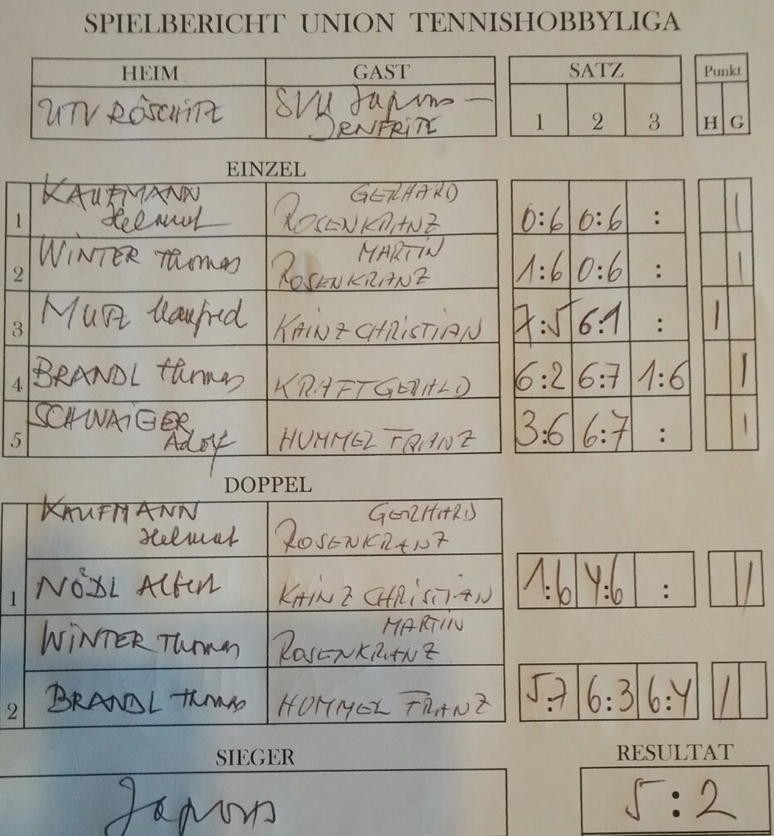 SPIELBERICHT UNION TENNISHOBBYLIGA
HEIM GAST SATZ Punkt
UTV RÖSCHITZ SVU Japons -
IRNFRITZ
1 2 3 H G
EINZEL
KAUFMANN GERHARD
1 Helmut ROSENKRANZ 0:6 0:6 : |
WINTER Thomas MARTIN
2 ROSENKRANZ 1:6 0:6 : |
3 MUTZ Manfred KAINZ CHRISTIAN 7:5 6:1 : |
4 BRANDL Thomas KRAFT GERALD 6:2 6:7 1:6 |
SCHWAIGER
5 Adolf HUMMEL FRANZ 3:6 6:7 : |
DOPPEL
KAUFMANN GERHARD
Helmut ROSENKRANZ
1 NÖDL Albert KAINZ CHRISTIAN 1:6 4:6 : |
WINTER Thomas MARTIN
ROSENKRANZ
2 BRANDL Thomas HUMMEL FRANZ 5:7 6:3 6:4 |
SIEGER RESULTAT
Japons 5:2